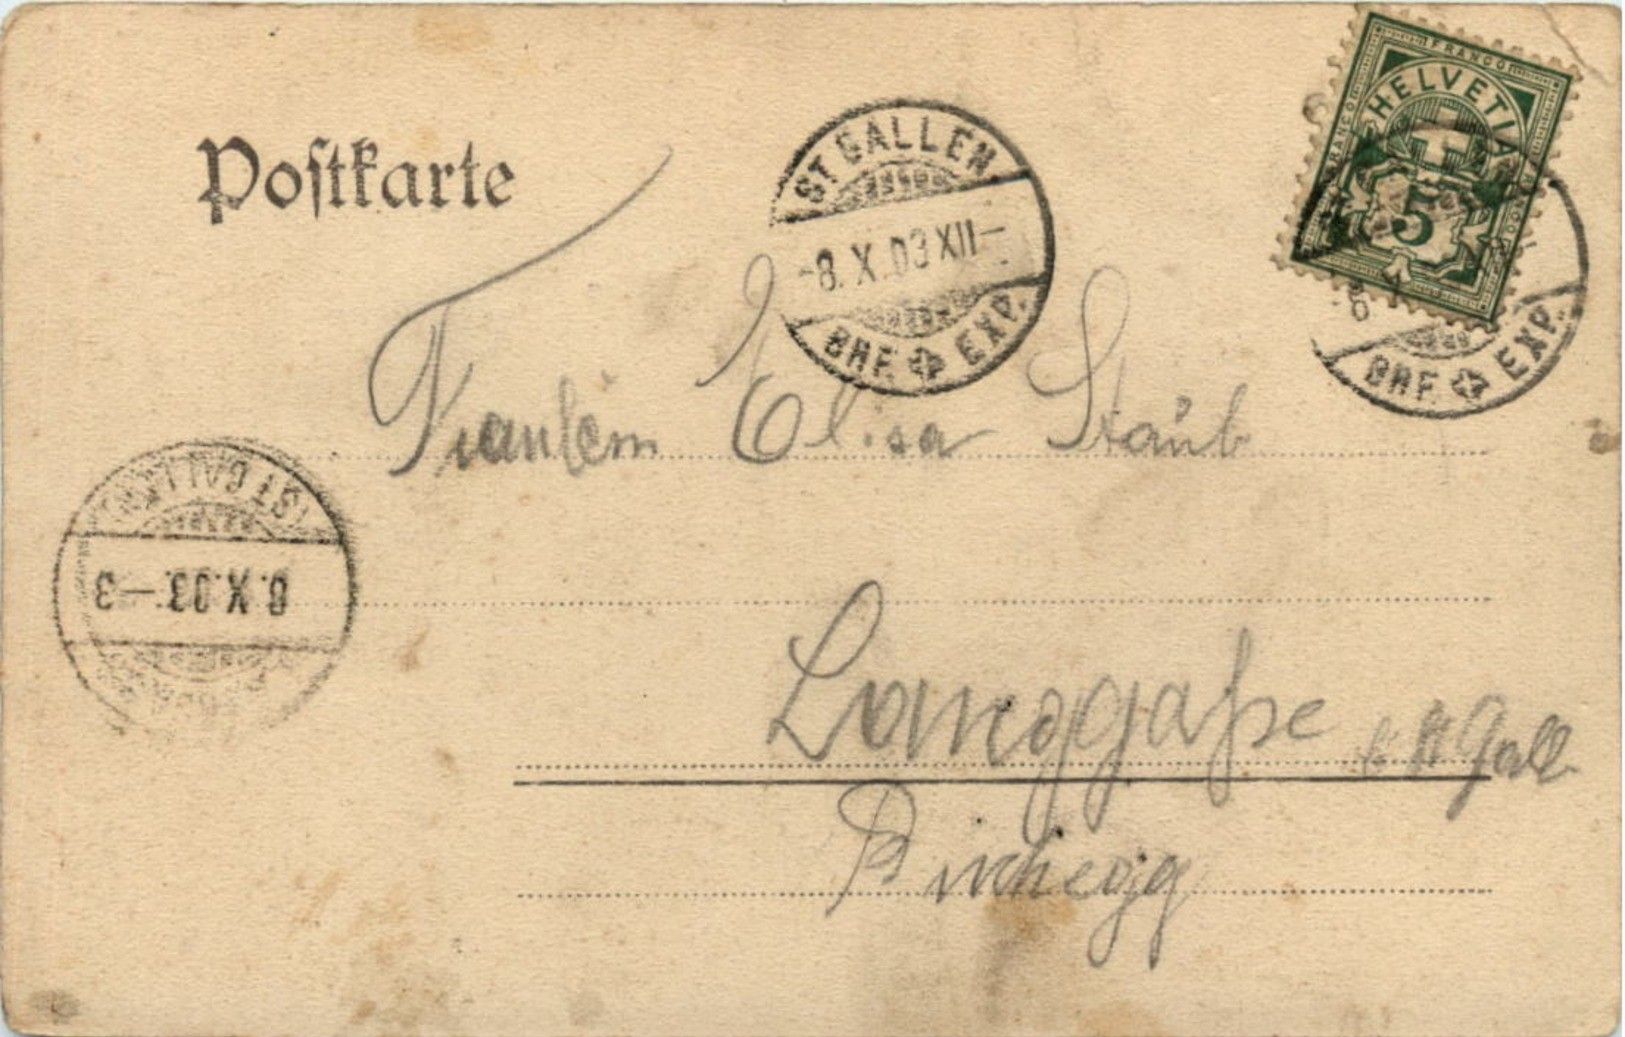 Postkarte
FRANCO
HELVETIA
FRANCO
5
ST. GALLEN
-8. X. 03 XII-
BRF. EXP.
BRF. EXP.
Fraulein Elisa Staub
ST. GALLEN
8. X. 03.-3
Langgaße b. St Gall.
Birchegg